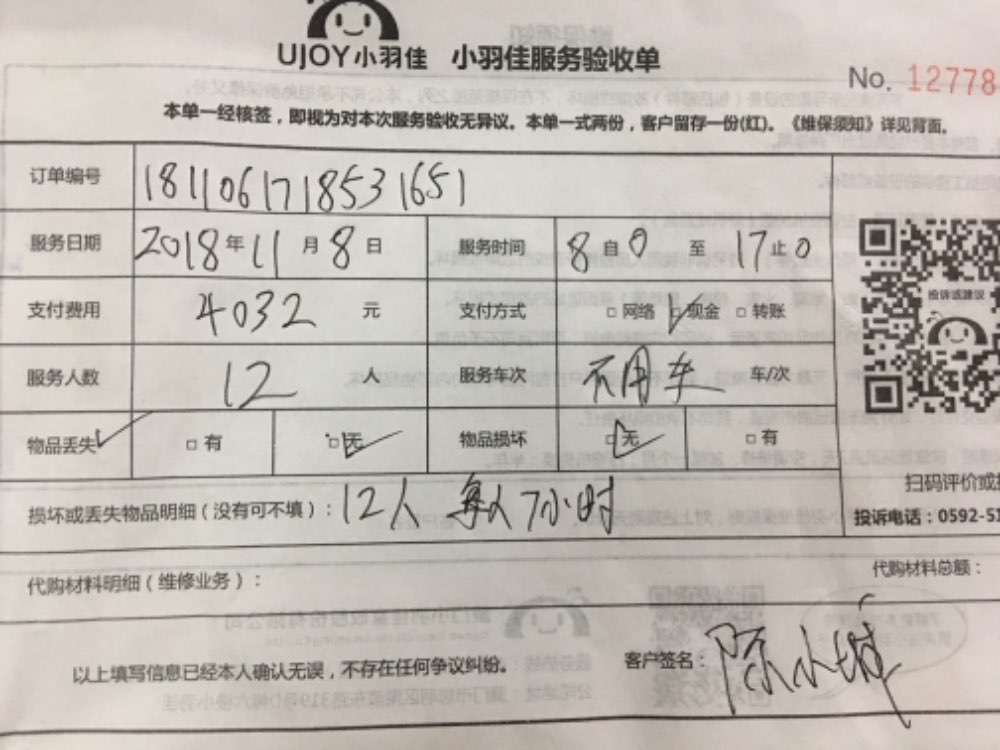 UJOY小羽佳 小羽佳服务验收单
No. 12778
本单一经核签，即视为对本次服务验收无异议。本单一式两份，客户留存一份(红)。《维保须知》详见背面。
订单编号 1811061718531651
服务日期 2018年11月8日 服务时间 8自0至17止0
支付费用 4032元 支付方式 □网络 □现金 □转账
服务人数 12人 服务车次 不用车 车/次
物品丢失 □有 □无 物品损坏 □无 □有
投诉或建议
扫码评价或投
损坏或丢失物品明细（没有可不填）：12人 每人7小时
投诉电话：0592-51
代购材料明细（维修业务）：
代购材料总额：
以上填写信息已经本人确认无误，不存在任何争议纠纷。
客户签名：陈小